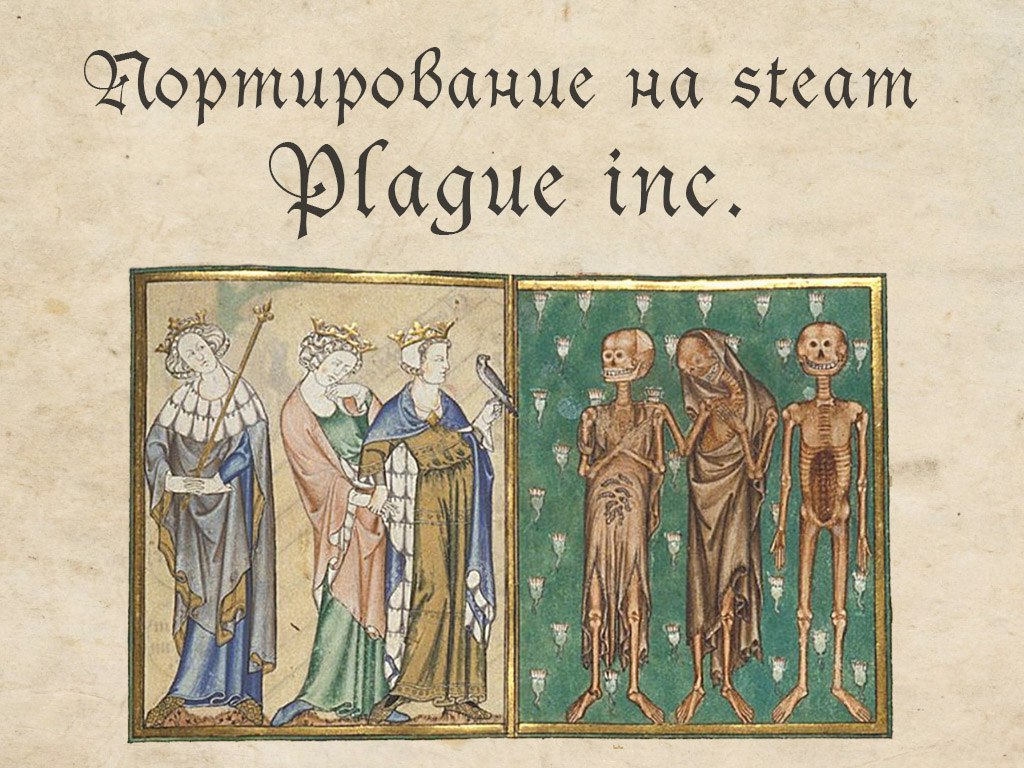 Портирование на steam
Plague inc.